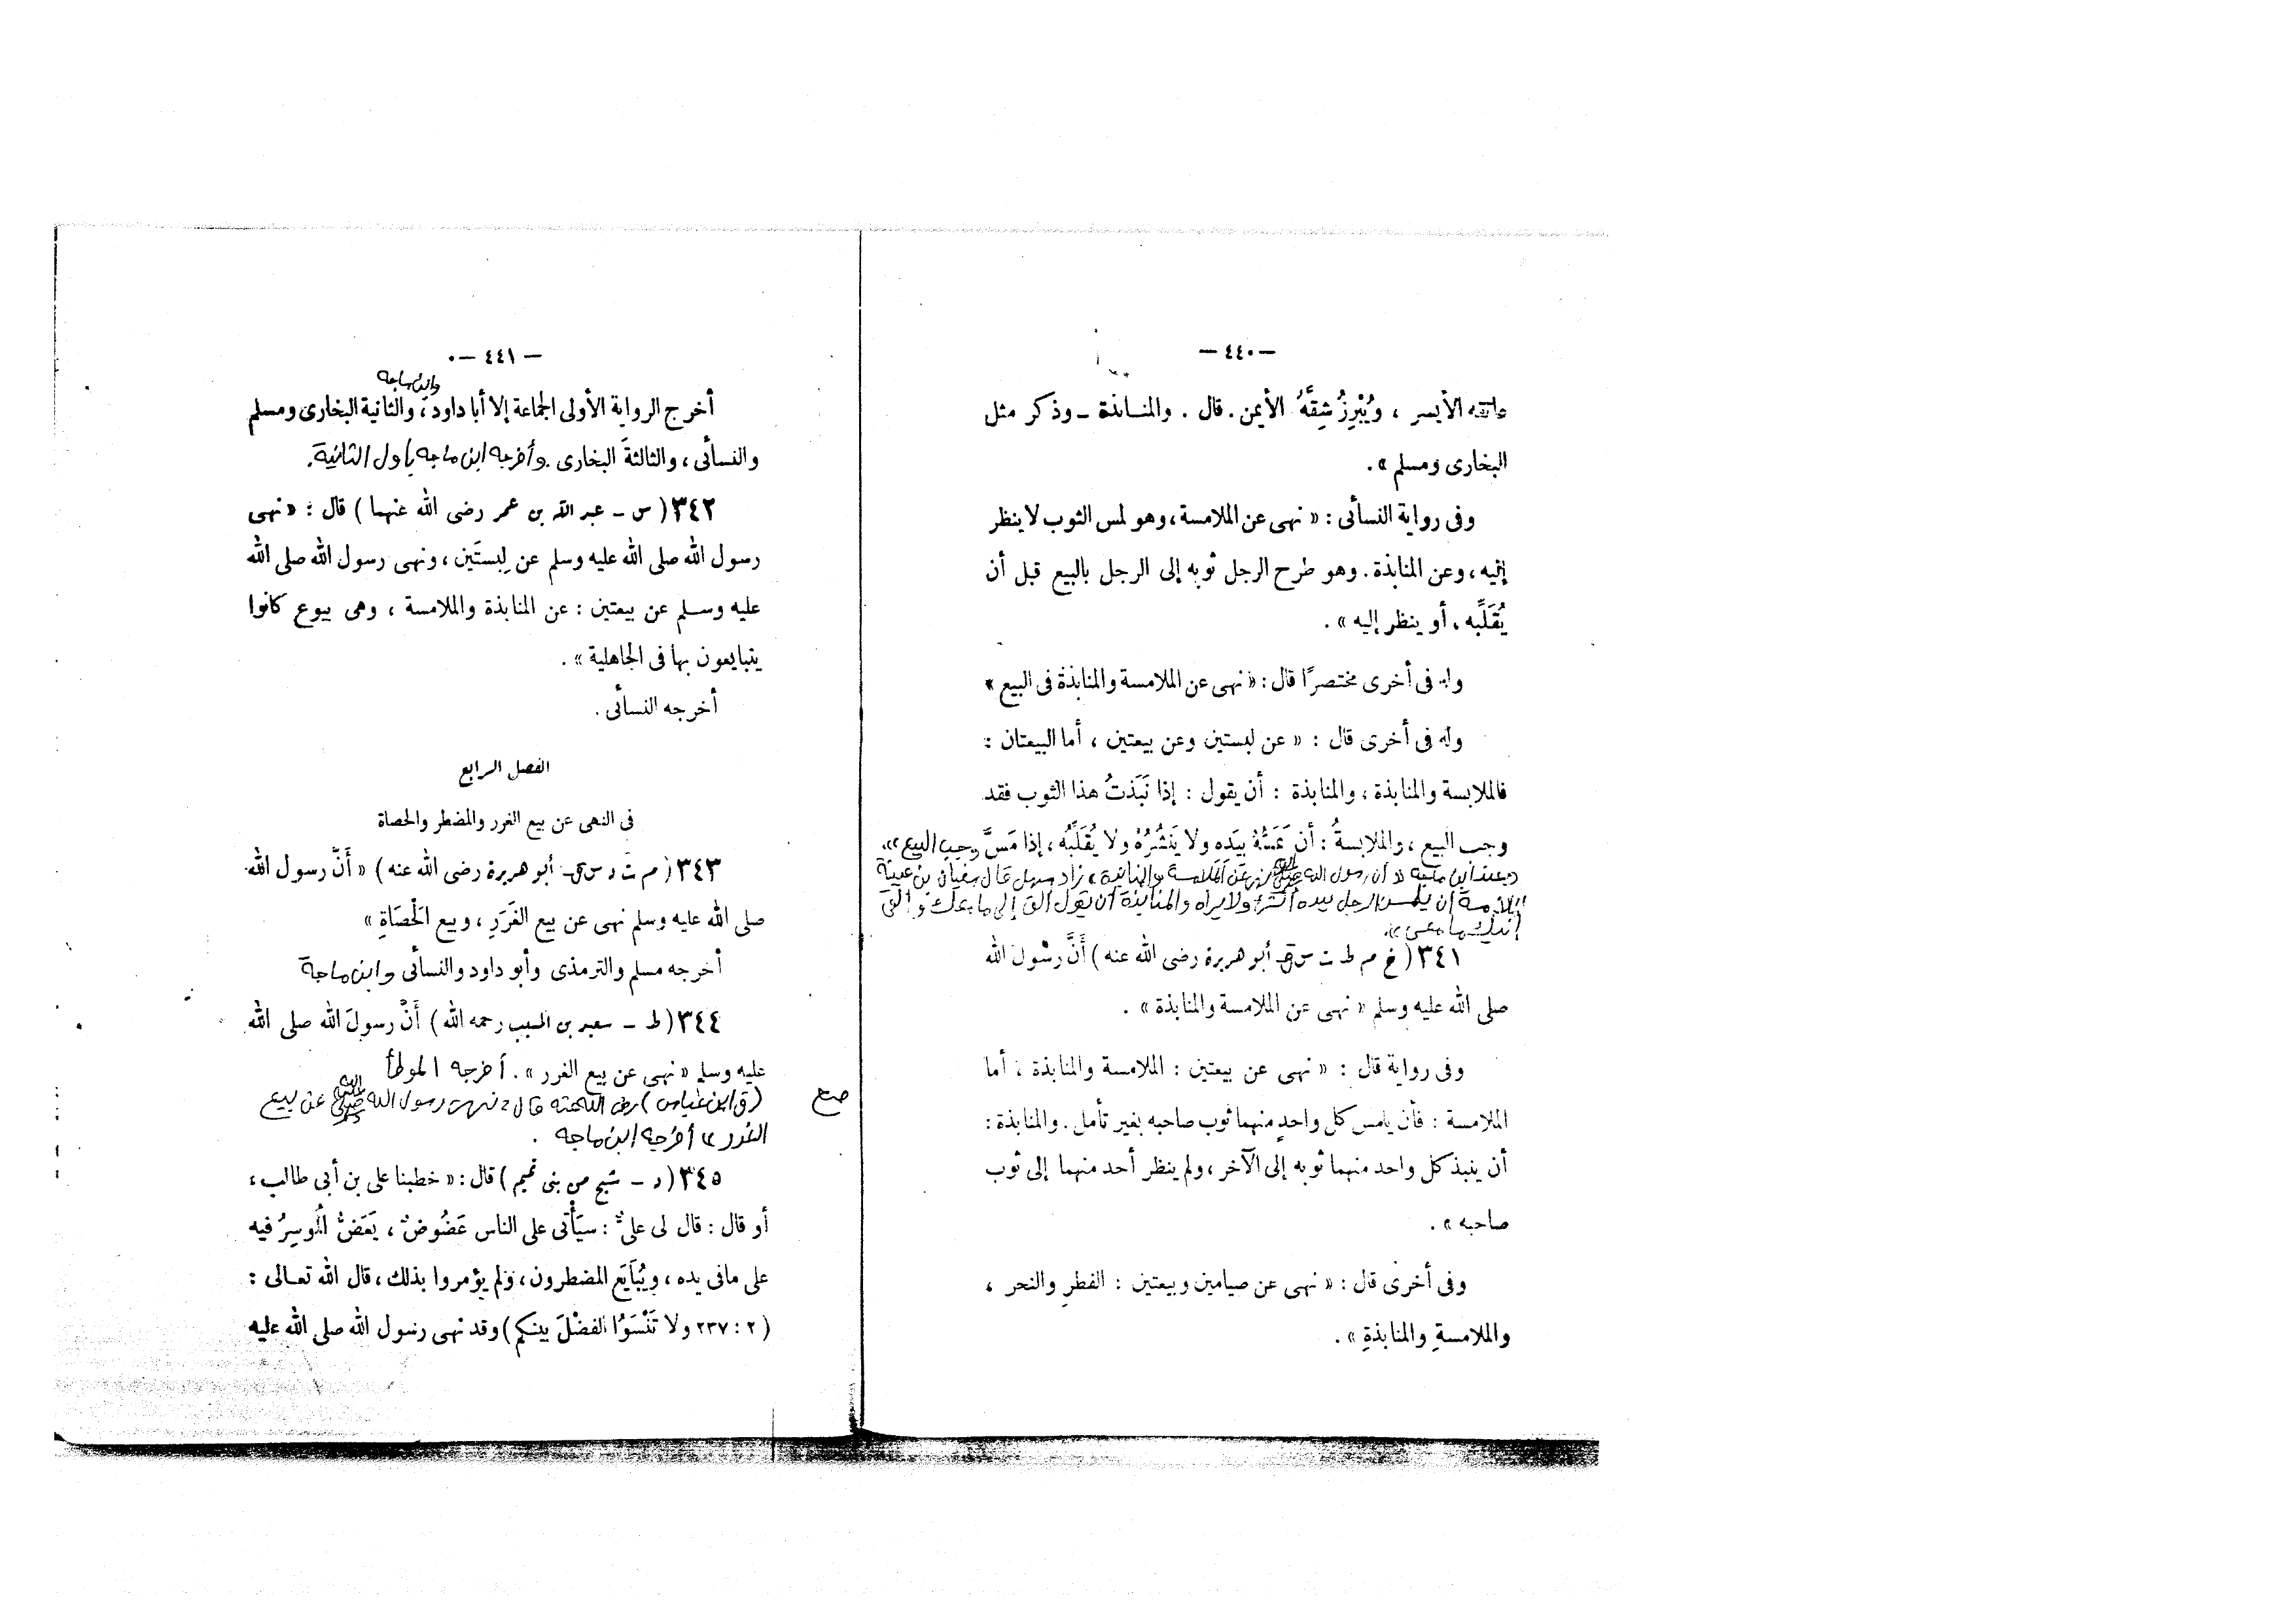 — ٤٤٠ —
عاتقه الأيسر ، ويُبْرِزُ شِقَّهُ الأيمن . قال . والمنابذة ــ وذكر مثل
البخارى ومسلم » .
وفى رواية النسائى : « نهى عن الملامسة ، وهو لمس الثوب لا ينظر
إليه ، وعن المنابذة . وهو طرح الرجل ثوبه إلى الرجل بالبيع قبل أن
يُقَلِّبه ، أو ينظر إليه » .
وله فى أخرى مختصرًا قال : « نهى عن الملامسة والمنابذة فى البيع »
وله فى أخرى قال : « عن لبستين وعن بيعتين ، أما البيعتان :
فالملابسة والمنابذة ، والمنابذة : أن يقول : إذا نَبَذتُ هذا الثوب فقد
وجب البيع ، والملابسةُ : أن يَمَسَّهُ بيَدِه ولا يَنْشُرُهُ ولا يُقَلِّبُه ، إذا مَسَّ وجب البيع » .
وعند ابن ماجه « أن رسول الله صلى الله عليه وسلم نهى عن الملامسة والمنابذة » زاد سهل قال سفيان بن عيينة
الملامسة أن يلمس الرجل بيده الشئ ولا يراه والمنابذة أن تقول ألق إلى ما معك وألقى
إليك ما معى » .
٣٤١ ( خ م ط ت س ق ـ أبو هريرة رضى الله عنه ) أَنَّ رسُول الله
صلى الله عليه وسلم « نهى عن الملامسة والمنابذة » .
وفى رواية قال : « نهى عن بيعتين : الملامسة والمنابذة ، أما
الملامسة : فأن يلمس كل واحدٍ منهما ثوب صاحبه بغير تأمل . والمنابذة :
أن ينبذ كل واحد منهما ثوبه إلى الآخر ، ولم ينظر أحد منهما إلى ثوب
صاحبه » .
وفى أخرى قال : « نهى عن صيامين وبيعتين : الفطرِ والنحر ،
والملامسةِ والمنابذةِ » .
— ٤٤١ —
وابن ماجه
أخرج الرواية الأولى الجماعة إلا أبا داود ، والثانية البخارى ومسلم
والنسائى ، والثالثةَ البخارى . وأخرجه ابن ماجه بأول الثانية .
٣٤٢ ( س ــ عبد الله بن عمر رضى الله عنهما ) قال : « نهى
رسول الله صلى الله عليه وسلم عن لِبستَين ، ونهى رسول الله صلى الله
عليه وسلم عن بيعتين : عن المنابذة والملامسة ، وهى بيوع كانوا
يتبايعون بها فى الجاهلية » .
أخرجه النسائى .
الفصل الرابع
فى النهى عن بيع الغرر والمضطر والحصاة
٣٤٣ ( م ت د س ق ـ أبو هريرة رضى الله عنه ) « أَنَّ رسول الله
صلى الله عليه وسلم نهى عن بيع الغَرَرِ ، وبيع الَحْصَاةِ »
أخرجه مسلم والترمذى وأبو داود والنسائى وابن ماجة
٣٤٤ ( ط ــ سعيد بن المسيب رحمه الله ) أَنَّ رسولَ الله صلى الله
عليه وسلم « نهى عن بيع الغرر » . أخرجه الموطأ
( ق ابن عباس ) رضى الله عنه قال « نهى رسول الله صلى الله عليه وسلم عن بيع
الغرر » أخرجه ابن ماجه .
٣٤٥ ( د ــ شيخ من بنى تميم ) قال : « خطبنا على بن أبى طالب ،
أو قال : قال لى علىٌّ : سيَأْتى على الناس عَضُوضٌ ، يَعَضُّ الُموسِرُ فيه
على مافى يده ، ويُبَايَع المضطرون ، ولم يؤمروا بذلك ، قال الله تعالى :
( ٢ : ٢٣٧ ولا تَنْسَوُا الفضْلَ بينكم ) وقد نهى رسول الله صلى الله عليه